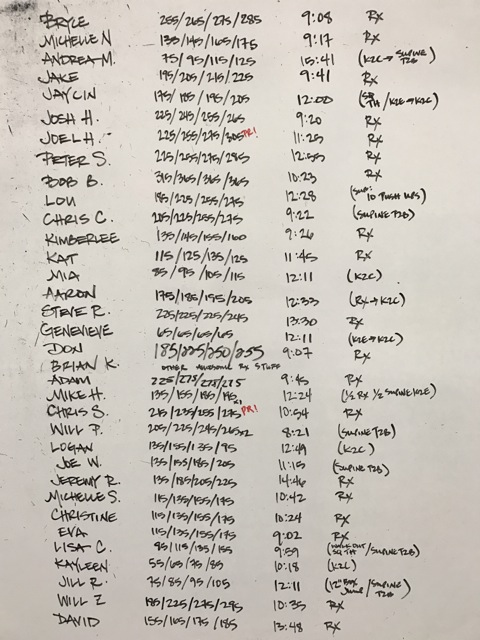 BRYCE 255/265/275/285 9:08 Rx
MICHELLE N 135/145/165/175 9:17 Rx
ANDREA M. 75/95/115/125 15:41 (K2C→ SUPINE T2B)
JAKE 195/205/215/225 9:41 Rx
JAYLIN 175/185/195/205 12:00 (TH/K2E→K2C)
JOSH H. 225/245/255/265 9:20 Rx
JOEL H. 225/255/275/305 PR! 11:25 Rx
PETER S. 225/255/275/285 12:55 Rx
BOB B. 315/365/365/365 10:23 Rx
LOU 185/225/255/275 12:28 (SUB: 10 PUSH UPS)
CHRIS C. 205/225/255/275 9:22 (SUPINE T2B)
KIMBERLEE 135/145/155/160 9:26 Rx
KAT 115/125/135/125 11:45 Rx
MIA 85/95/105/115 12:11 (K2C)
AARON 175/185/195/205 12:33 (Rx→K2C)
STEVE R. 225/225/225/245 13:30 Rx
GENEVIEVE 65/65/65/65 12:11 (K2E→K2C)
DON 185/225/250/255 9:07 Rx
BRIAN K. OTHER AWESOME RX STUFF
ADAM 225/275/275/275 9:45 Rx
MIKE H. 135/155/185/195 x1 12:24 (½ Rx ½ SUPINE K2E)
CHRIS S. 215/235/255/275 PR! 10:54 Rx
WILL P. 205/225/245/265x2 8:21 (SUPINE T2B)
LOGAN 135/155/135/95 12:49 (K2C)
JOE W. 135/155/185/205 11:15 (SUPINE T2B)
JEREMY R. 135/185/205/225 14:46 Rx
MICHELLE S. 115/135/155/175 10:42 Rx
CHRISTINE 115/135/155/175 10:24 Rx
EVA 115/135/155/175 9:02 Rx
LISA C. 95/115/135/155 9:59 (WALK OUT SQ TH/SUPINE T2B)
KAYLEEN 55/65/75/85 10:18 (K2C)
JILL R. 75/85/95/105 12:11 (12" BOX JUMP/SUPINE T2B)
WILL Z 185/225/275/295 10:35 Rx
DAVID 155/165/175/185 13:48 Rx